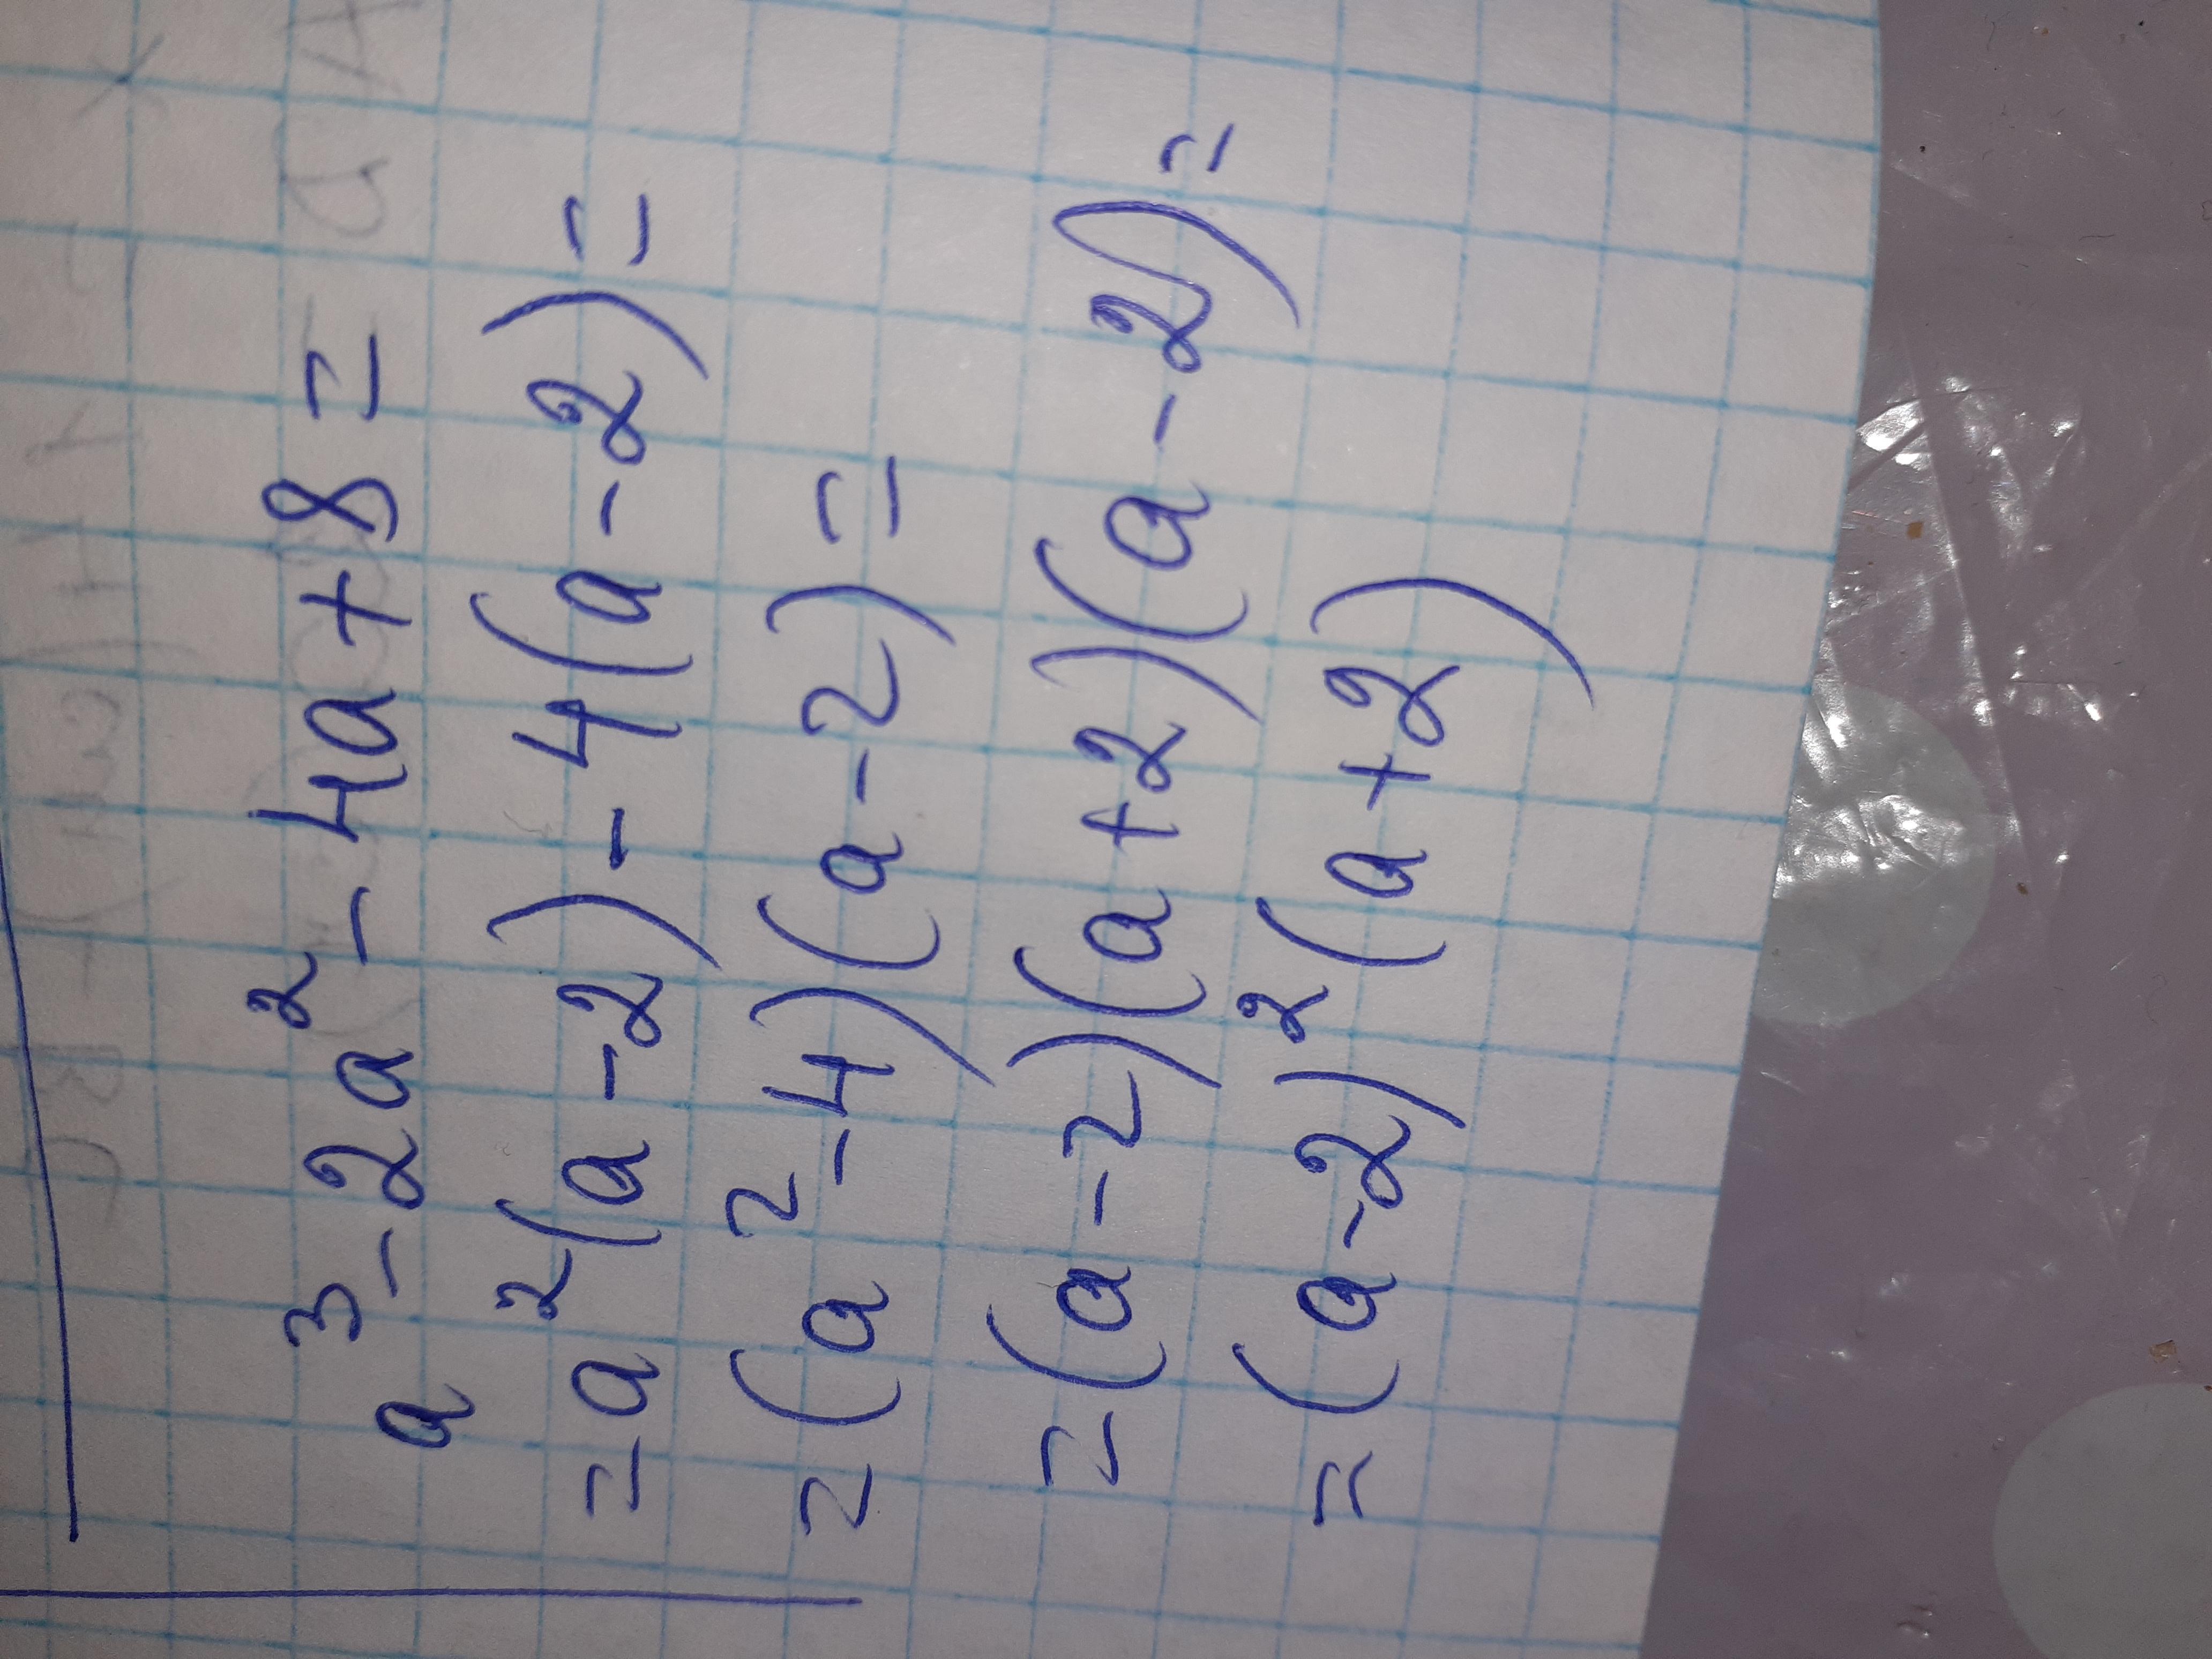 a³-2a²-4a+8=
=a²(a-2)-4(a-2)=
=(a²-4)(a-2)=
=(a-2)(a+2)(a-2)=
=(a-2)²(a+2)